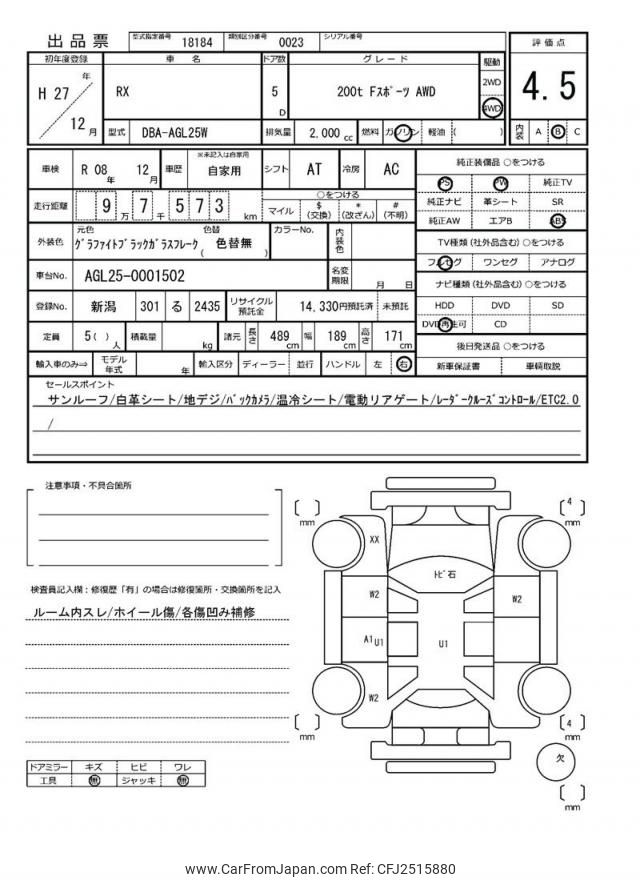 出品票 型式指定番号 18184 類別区分番号 0023 シリアル番号
初年度登録 車 名 ドア数 グレード 駆動 評価点
H 27 年 12 月 RX 5 D 200t Fスポーツ AWD 2WD 4WD 4.5
型式 DBA-AGL25W 排気量 2,000 cc 燃料 ガソリン 軽油 ( ) 内装 A B C
車検 R 08 年 12 月 車歴 ※未記入は自家用 自家用 シフト AT 冷房 AC
走行距離 9 万 7 千 5 7 3 km
○をつける
マイル $ (交換) * (改ざん) # (不明)
外装色 元色 グラファイトブラックガラスフレーク 色替 ( 色替無 ) カラーNo. 内装色
車台No. AGL25-0001502 名変期限 月 日
登録No. 新潟 301 る 2435 リサイクル預託金 14,330円預託済 未預託
定員 5 ( ) 人 積載量 kg 諸元 長さ 489 cm 幅 189 cm 高さ 171 cm
輸入車のみ⇒ モデル年式 年 輸入区分 ディーラー 並行 ハンドル 左 右
純正装備品 ○をつける
PS PW 純正TV
純正ナビ 革シート SR
純正AW エアB ABS
TV種類 (社外品含む) ○をつける
フルセグ ワンセグ アナログ
ナビ種類 (社外品含む) ○をつける
HDD DVD SD
DVD再生可 CD
後日発送品 ○をつける
新車保証書 車輌取説
セールスポイント
サンルーフ/白革シート/地デジ/バックカメラ/温冷シート/電動リアゲート/レーダークルーズコントロール/ETC2.0
/
注意事項・不具合箇所
検査員記入欄:修復歴「有」の場合は修復箇所・交換箇所を記入
ルーム内スレ/ホイール傷/各傷凹み補修
ドアミラー キズ ヒビ ワレ
工具 無 ジャッキ 無
[ ] mm
[ 4 ] mm
XX
トビ石
W2
W2
A1
U1
U1
W2
[ ] mm
[ 4 ] mm
欠
[ ] mm
www.CarFromJapan.com Ref: CFJ2515880